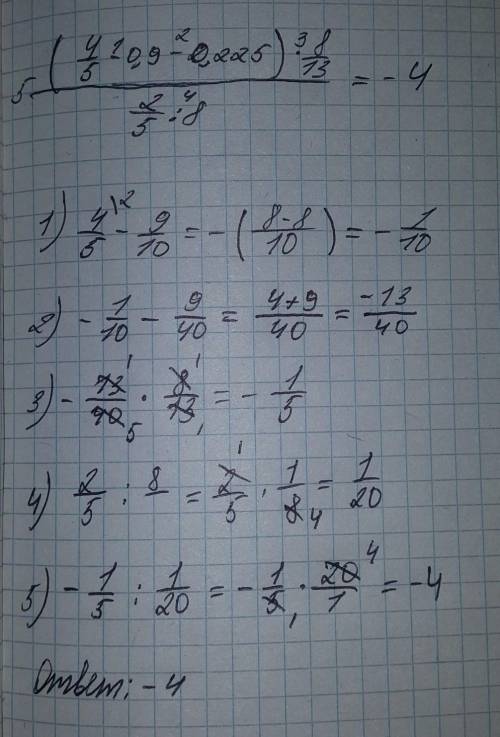 5 (4/5 -¹ 0,9 -² 0,225) ·³ 8/13
2/5 :⁴ 8
= -4
1) 4/5 \² - 9/10 = -(8-8/10) = -1/10
2) -1/10 - 9/40 = 4+9/40 = -13/40
3) -13/40 · 8/13 = -1/5
4) 2/5 : 8/ = 2/5 · 1/8 = 1/20
5) -1/5 : 1/20 = -1/5 · 20/1 = -4
Ответ: -4